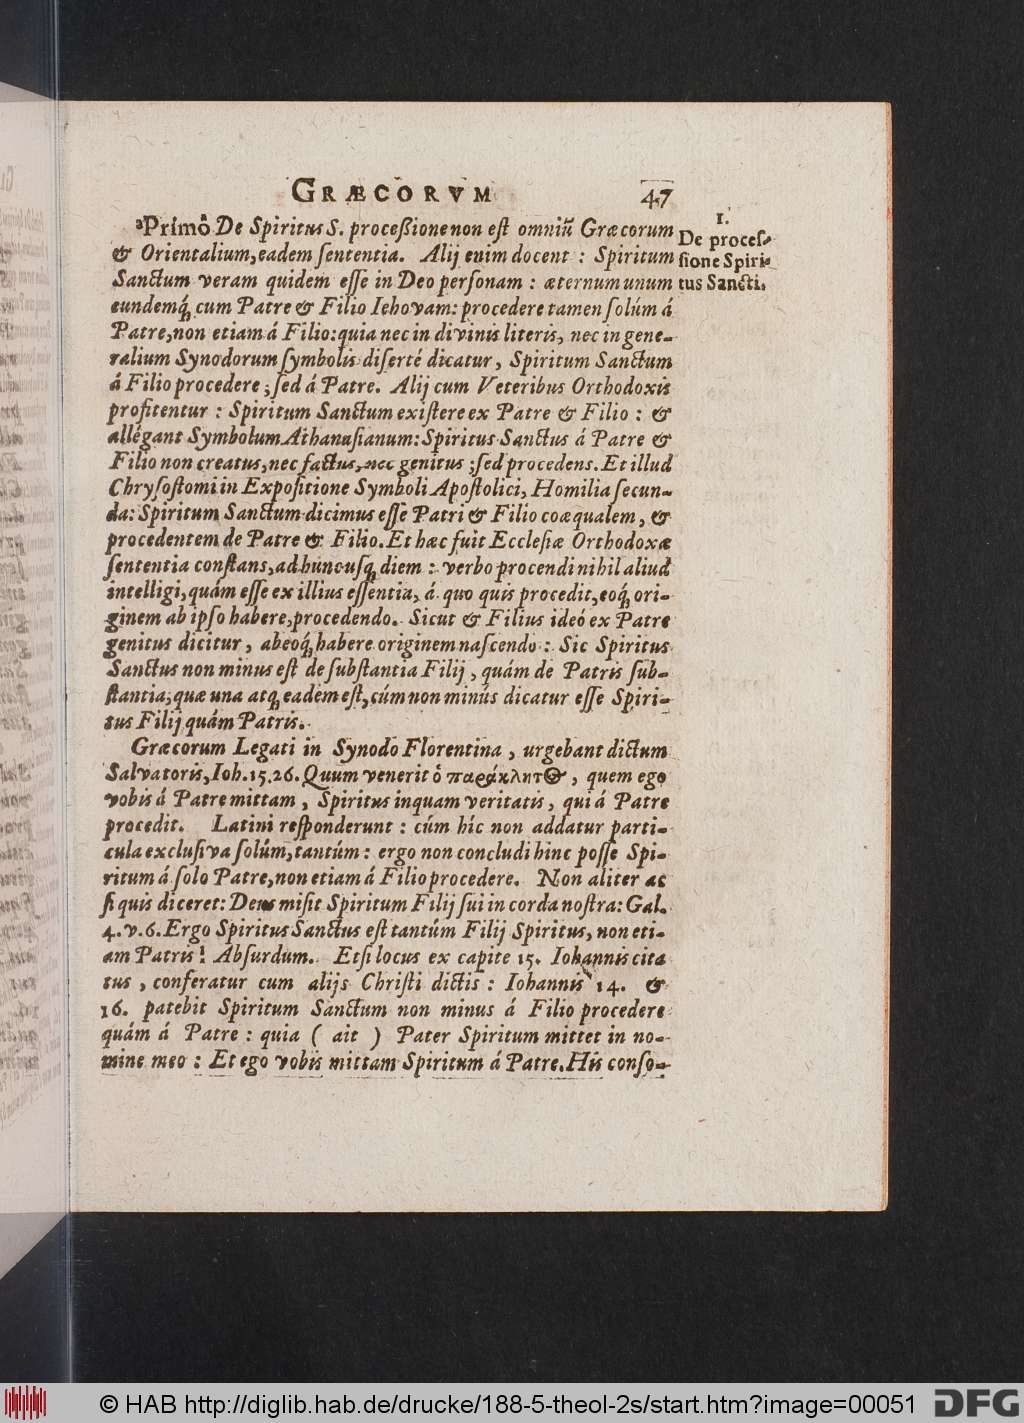 GRÆCORVM 47
ᵃPrimò De Spiritus S. proceßione non est omniũ Græcorum
& Orientalium, eadem sententia. Alij enim docent : Spiritum
Sanctum veram quidem esse in Deo personam : æternum unum
eundemq́; cum Patre & Filio Iehovam: procedere tamen solúm á
Patre, non etiam á Filio: quia nec in divinis literis, nec in gene-
ralium Synodorum symbolis diserté dicatur, Spiritum Sanctum
á Filio procedere ; sed á Patre. Alij cum Veteribus Orthodoxis
profitentur : Spiritum Sanctum existere ex Patre & Filio : &
allégant Symbolum Athanasianum: Spiritus Sanctus á Patre &
Filio non creatus, nec factus, nec genitus ; sed procedens. Et illud
Chrysostomi in Expositione Symboli Apostolici, Homilia secun-
da: Spiritum Sanctum dicimus esse Patri & Filio coæqualem, &
procedentem de Patre & Filio. Et hæc fuit Ecclesiæ Orthodoxæ
sententia constans, ad huncusq́; diem : verbo procendi nihil aliud
intelligi, quám esse ex illius essentia, á quo quis procedit, eoq́; ori-
ginem ab ipso habere, procedendo. Sicut & Filius ideó ex Patre
genitus dicitur, abeoq́; habere originem nascendo : Sic Spiritus
Sanctus non minus est de substantia Filij, quám de Patris sub-
stantia; quæ una atq́; eadem est, cúm non minús dicatur esse Spiri-
tus Filij quám Patris.
Græcorum Legati in Synodo Florentina, urgebant dictum
Salvatoris, Ioh. 15. 26. Quum venerit ὁ παράκλητος, quem ego
vobis á Patre mittam, Spiritus inquam veritatis, qui á Patre
procedit. Latini responderunt : cúm híc non addatur parti-
cula exclusiva solúm, tantúm : ergo non concludi hinc posse Spi-
ritum á solo Patre, non etiam á Filio procedere. Non aliter ac
si quis diceret: Deus misit Spiritum Filij sui in corda nostra: Gal.
4. v. 6. Ergo Spiritus Sanctus est tantúm Filij Spiritus, non eti-
am Patris! Absurdum. Etsi locus ex capite 15. Iohannis cita
tus, conferatur cum alijs Christi dictis : Iohannis 14. &
16. patebit Spiritum Sanctum non minus á Filio procedere
quám á Patre : quia ( ait ) Pater Spiritum mittet in no-
mine meo : Et ego vobis mittam Spiritum á Patre. His conso-
1.
De proces-
sione Spiri-
tus Sancti.
© HAB http://diglib.hab.de/drucke/188-5-theol-2s/start.htm?image=00051
DFG